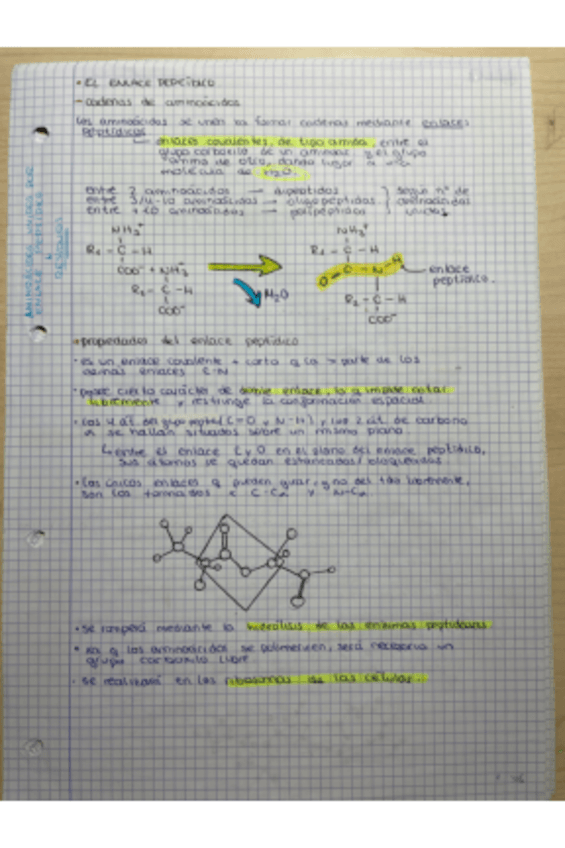 • EL ENLACE PEPTÍDICO
- cadenas de aminoácidos
Los aminoácidos se unen xa formar cadenas mediante enlaces
peptídicos
enlaces covalentes, de tipo amida, entre el
grupo carboxilo de un aminoac y el grupo
amino de otro, dando lugar a una
molécula de H2O.
entre 2 aminoácidos → dipéptidos
entre 3/4-10 aminoácidos → oligopéptidos
entre +10 aminoácidos → polipéptidos
según nº de
aminoácidos
unidos
AMINOÁCIDOS UNIDOS POR
ENLACE PEPTÍDICO
NH3+
R1 - C - H
COO- + NH3+
R2 - C - H
COO-
H2O
NH3+
R1 - C - H
O = C - N - H
R2 - C - H
COO-
enlace
peptídico.
• propiedades del enlace peptídico
• es un enlace covalente + corto q la > parte de los
demás enlaces C-N
• posee cierto carácter de doble enlace, lo q impide rotar
libremente y restringe la conformación espacial
• Los 4 át. del grupo peptid (C=O y N-H) y los 2 át. de carbono
α se hallan situados sobre un mismo plano
↳ entre el enlace C y O en el plano del enlace peptídico,
sus átomos se quedan estancados/bloqueados
• Los únicos enlaces q pueden girar, y no del todo libremente,
son los formados x C-Cα y N-Cα
• se romperá mediante la hidrólisis de las enzimas peptidasas
• xa q los aminoácidos se polimericen, será necesario un
grupo carboxilo libre
• se realizará en los ribosomas de las células.